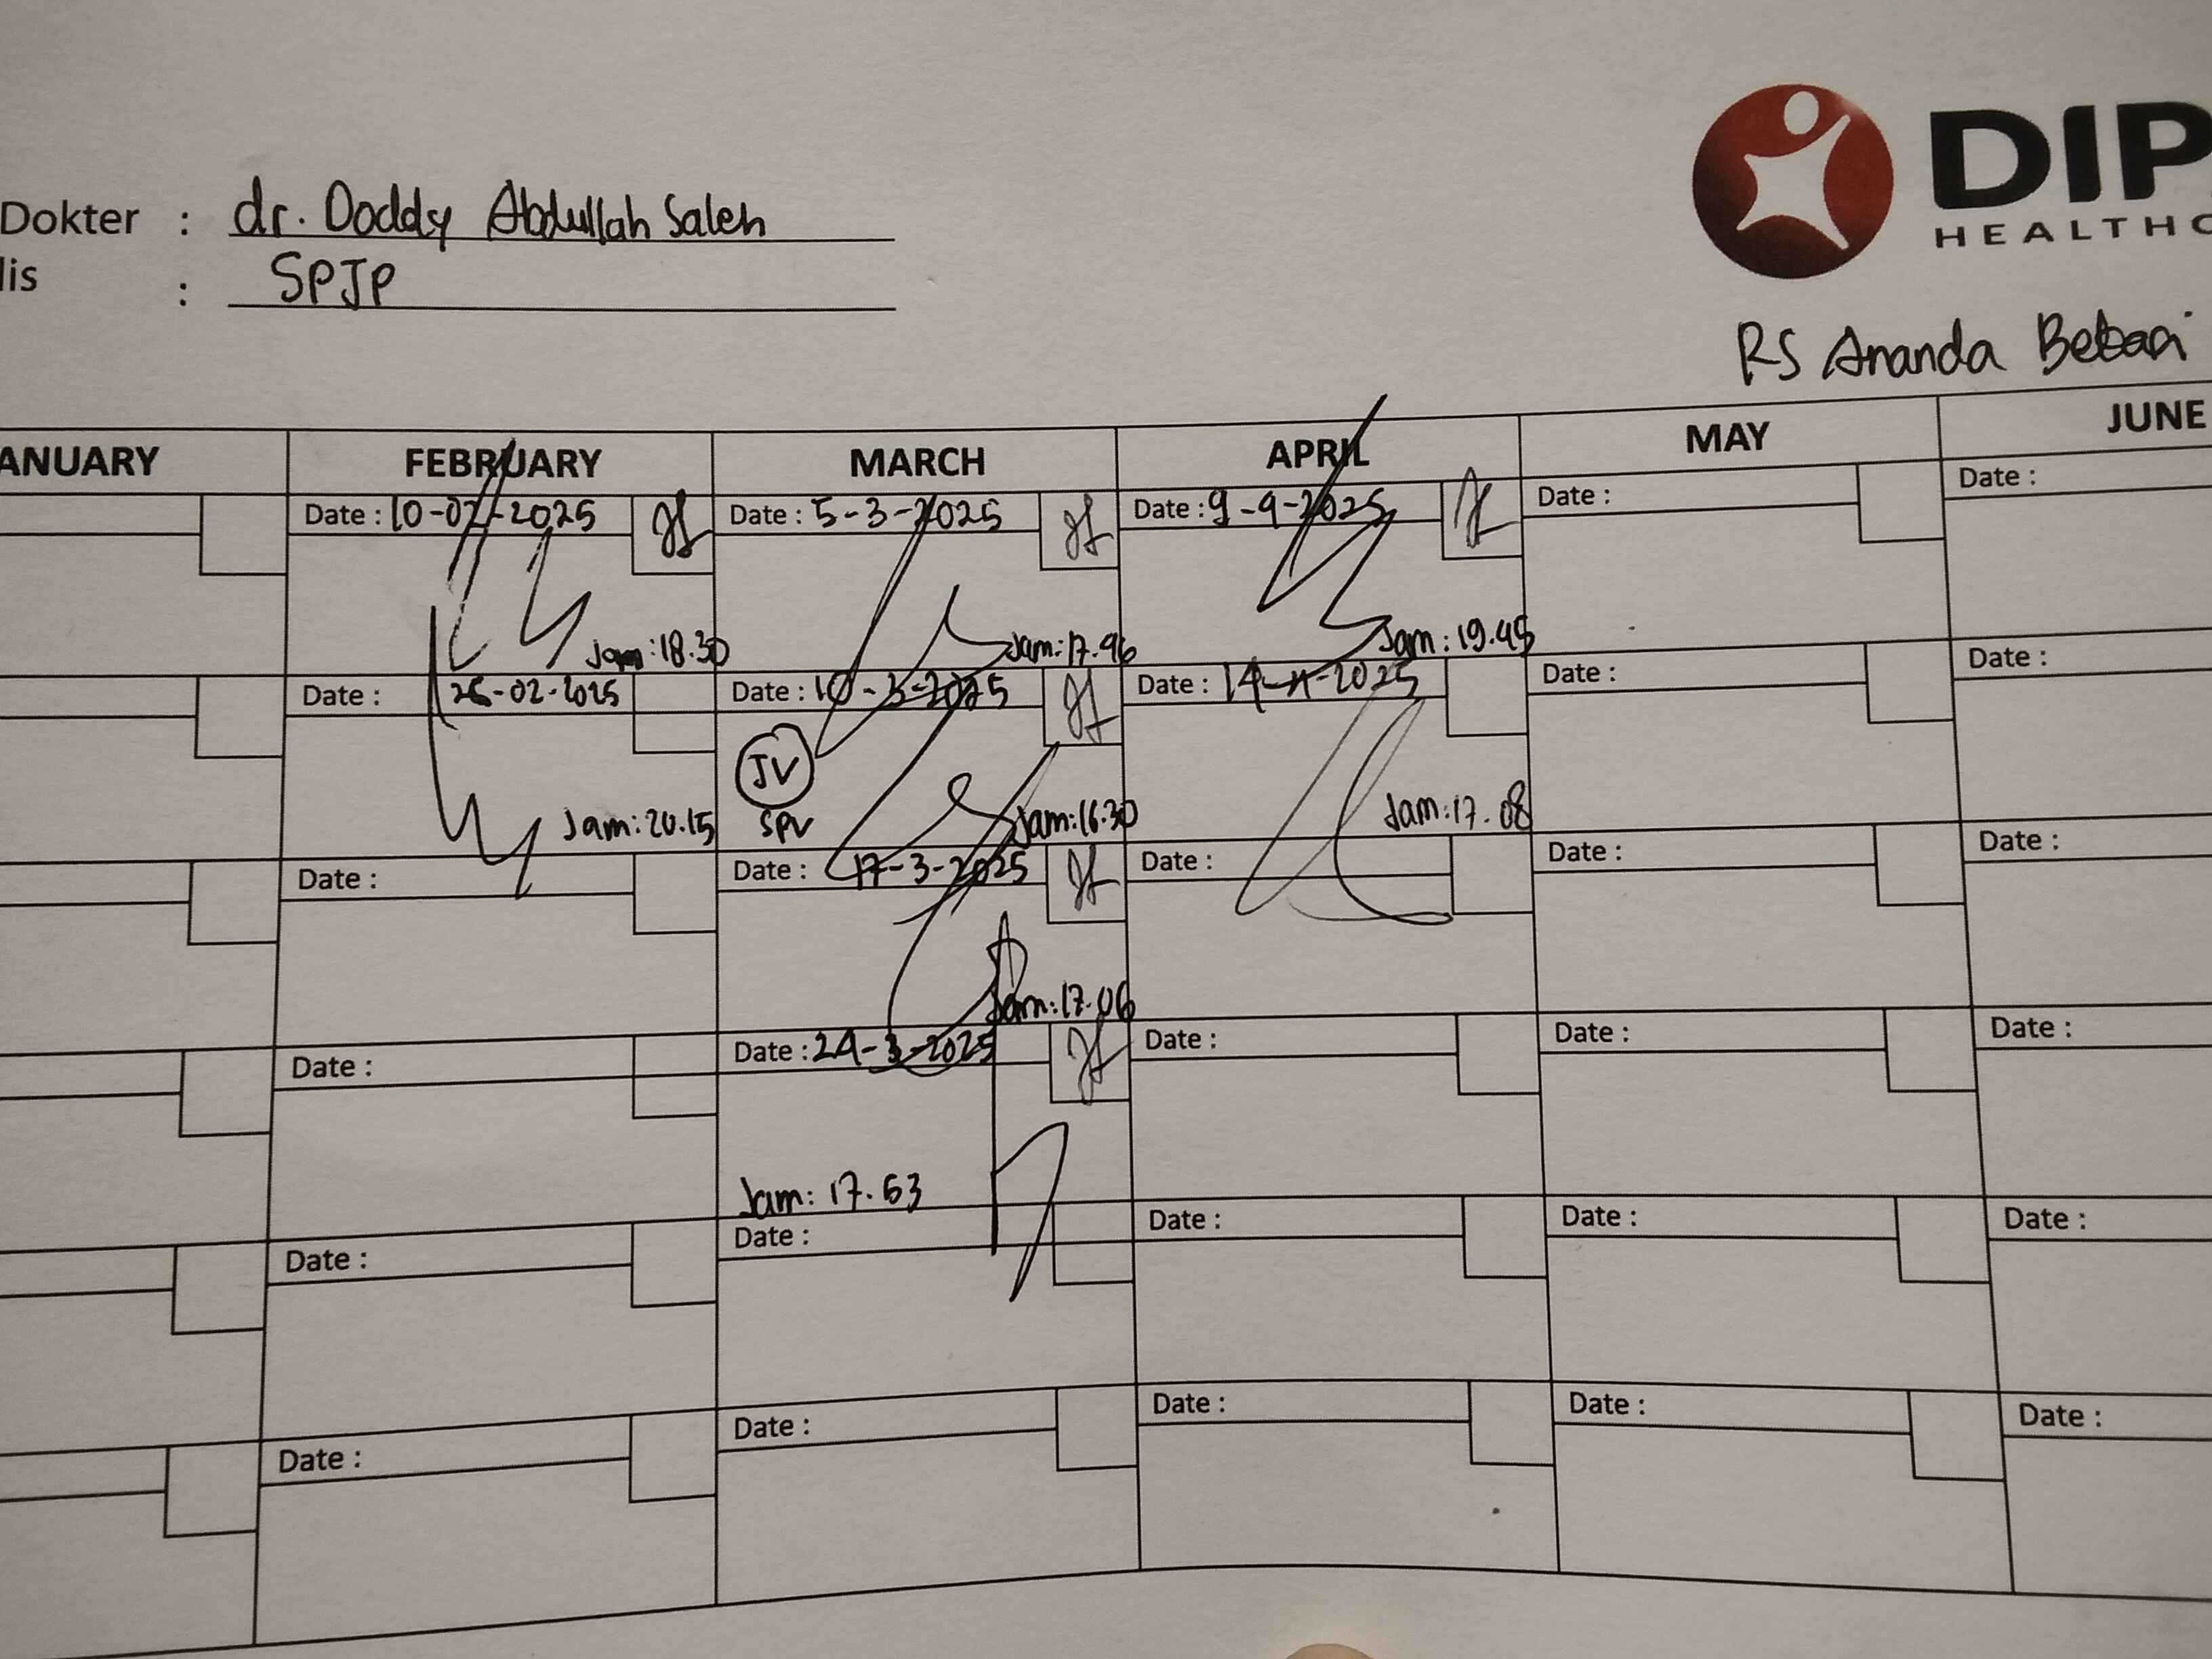 DIP
HEALTHC
Dokter : dr. Doddy Abdullah Saleh
lis : SPJP
RS Ananda Bekasi
ANUARY FEBRUARY MARCH APRIL MAY JUNE
Date : 10-02-2025 Date : 5-3-2025 Date : 9-4-2025 Date : Date :
Jam: 18.30 Jam: 17.46 Jam: 19.45
Date : 26-02-2025 Date : 10-3-2025 Date : 14-4-2025 Date : Date :
JV
SPV
Jam: 20.15 Jam: 16.30 Jam: 17.08
Date : Date : 17-3-2025 Date : Date : Date :
Jam: 17.06
Date : Date : 24-3-2025 Date : Date : Date :
Jam: 17.53
Date : Date : Date : Date : Date :
Date : Date : Date : Date : Date :